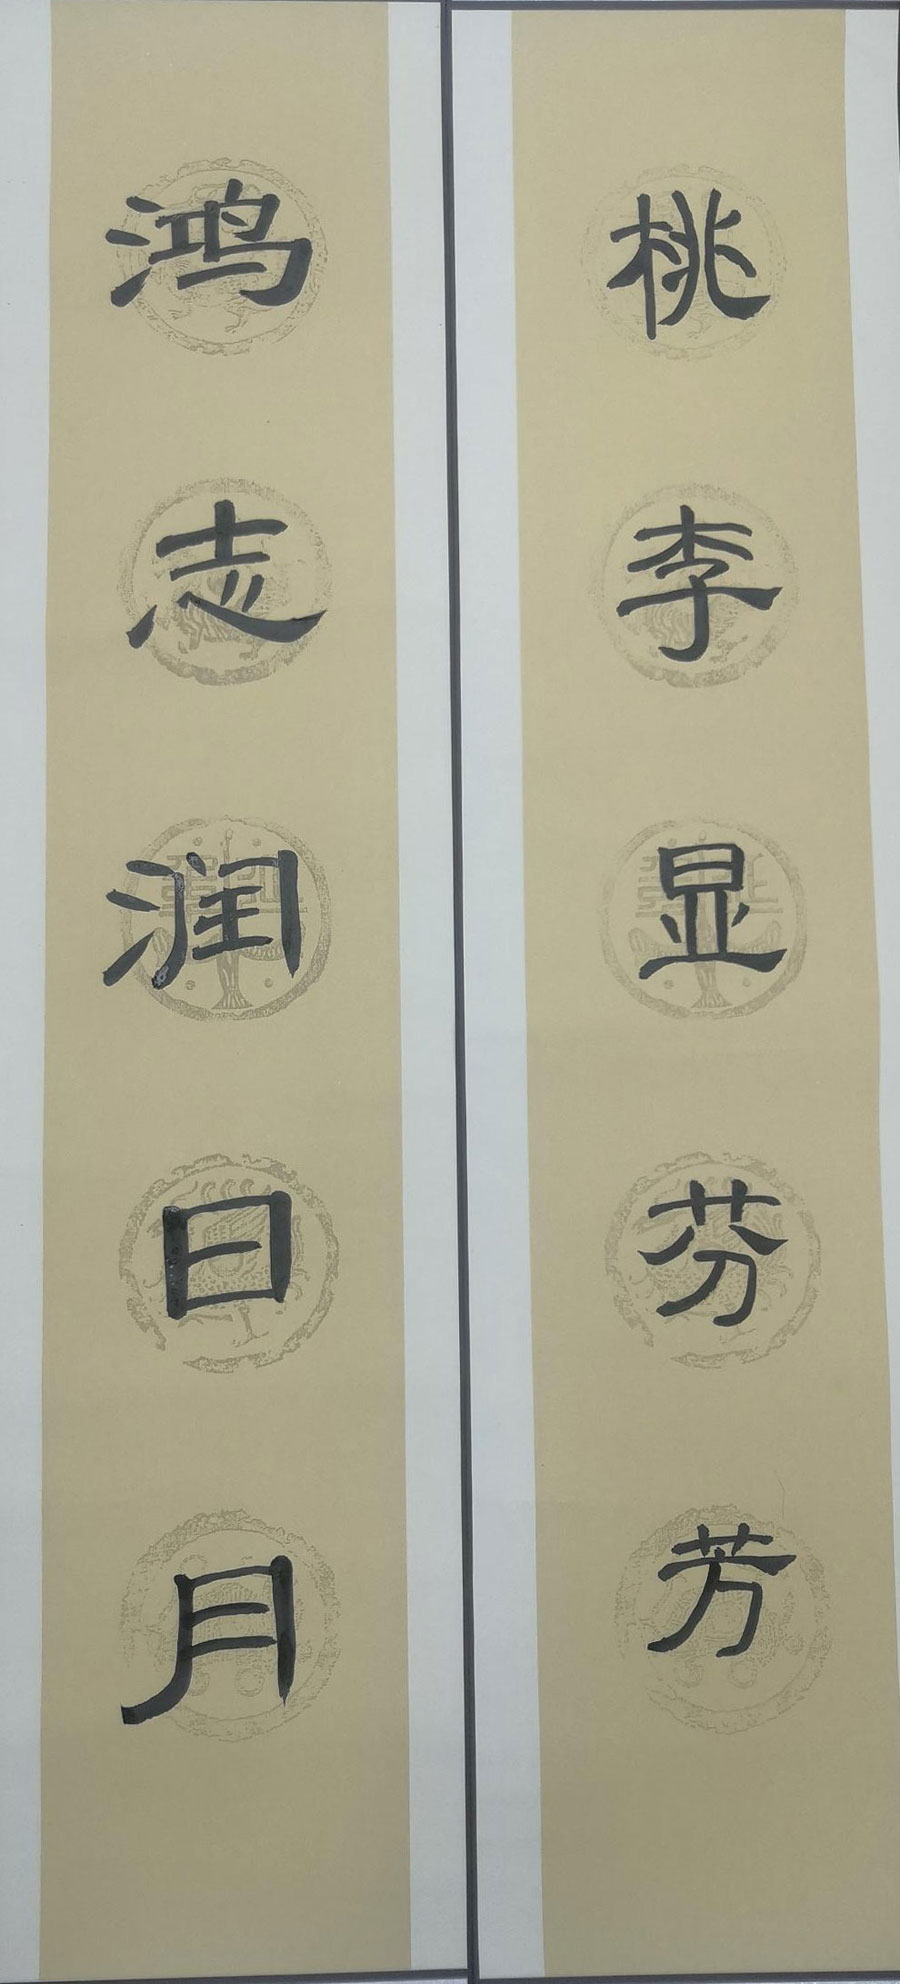 桃李显芬芳
鸿志润日月